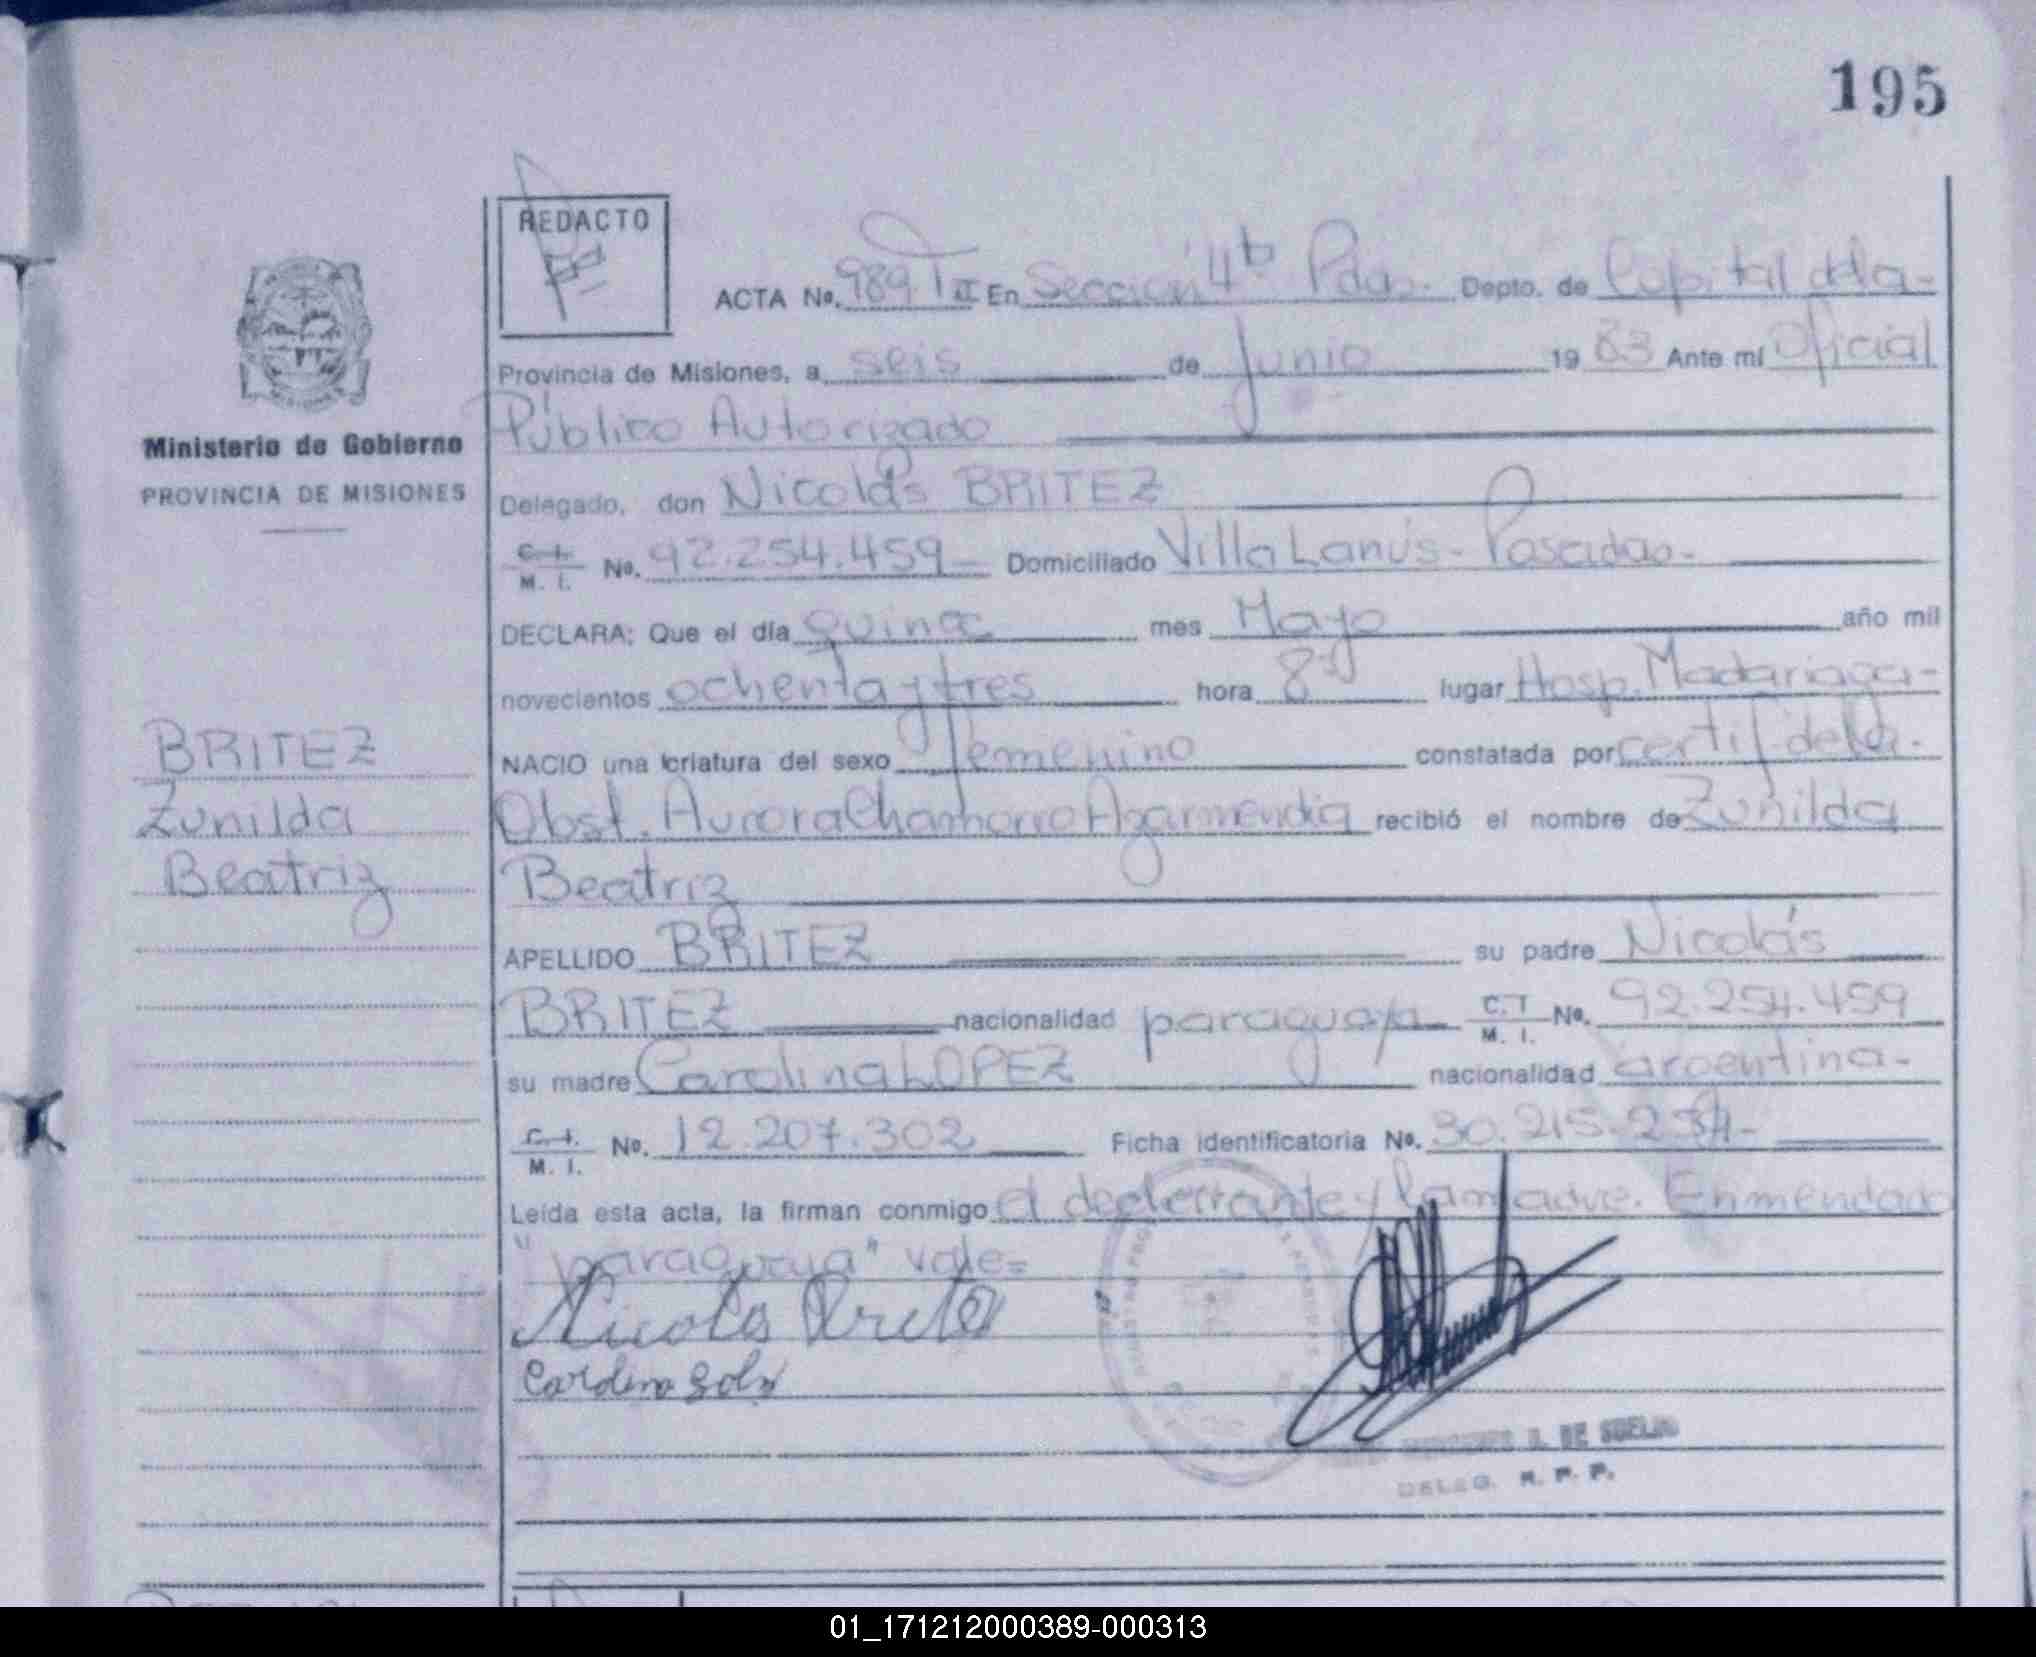 195
REDACTO
ACTA No. 989 T II En Sección 4ta Pdas. Depto. de Capital de la-
Provincia de Misiones, a seis de Junio 1983 Ante mí Oficial
Público Autorizado
Ministerio de Gobierno
PROVINCIA DE MISIONES
Delegado, don Nicolás BRITEZ
C. I. M. I. No. 92.254.459 Domiciliado Villa Lanús- Posadas-
DECLARA: Que el día quince mes Mayo año mil
novecientos ochenta y tres hora 8 lugar Hosp. Madariaga-
NACIO una criatura del sexo femenino constatada por certif. de la
Obst. Aurora Chamorro Azarmendia recibió el nombre de Zunilda
Beatriz
BRITEZ
Zunilda
Beatriz
APELLIDO BRITEZ su padre Nicolás
BRITEZ nacionalidad paraguaya C. I. M. I. No. 92.254.459
su madre Carolina LOPEZ nacionalidad argentina-
C. I. M. I. No. 12.207.302 Ficha identificatoria No. 30.215.234-
Leída esta acta, la firman conmigo el declarante y la madre. Enmendado
"paraguaya" vale=
Nicolas
DE
DELEG. R. P. P.
01_171212000389-000313